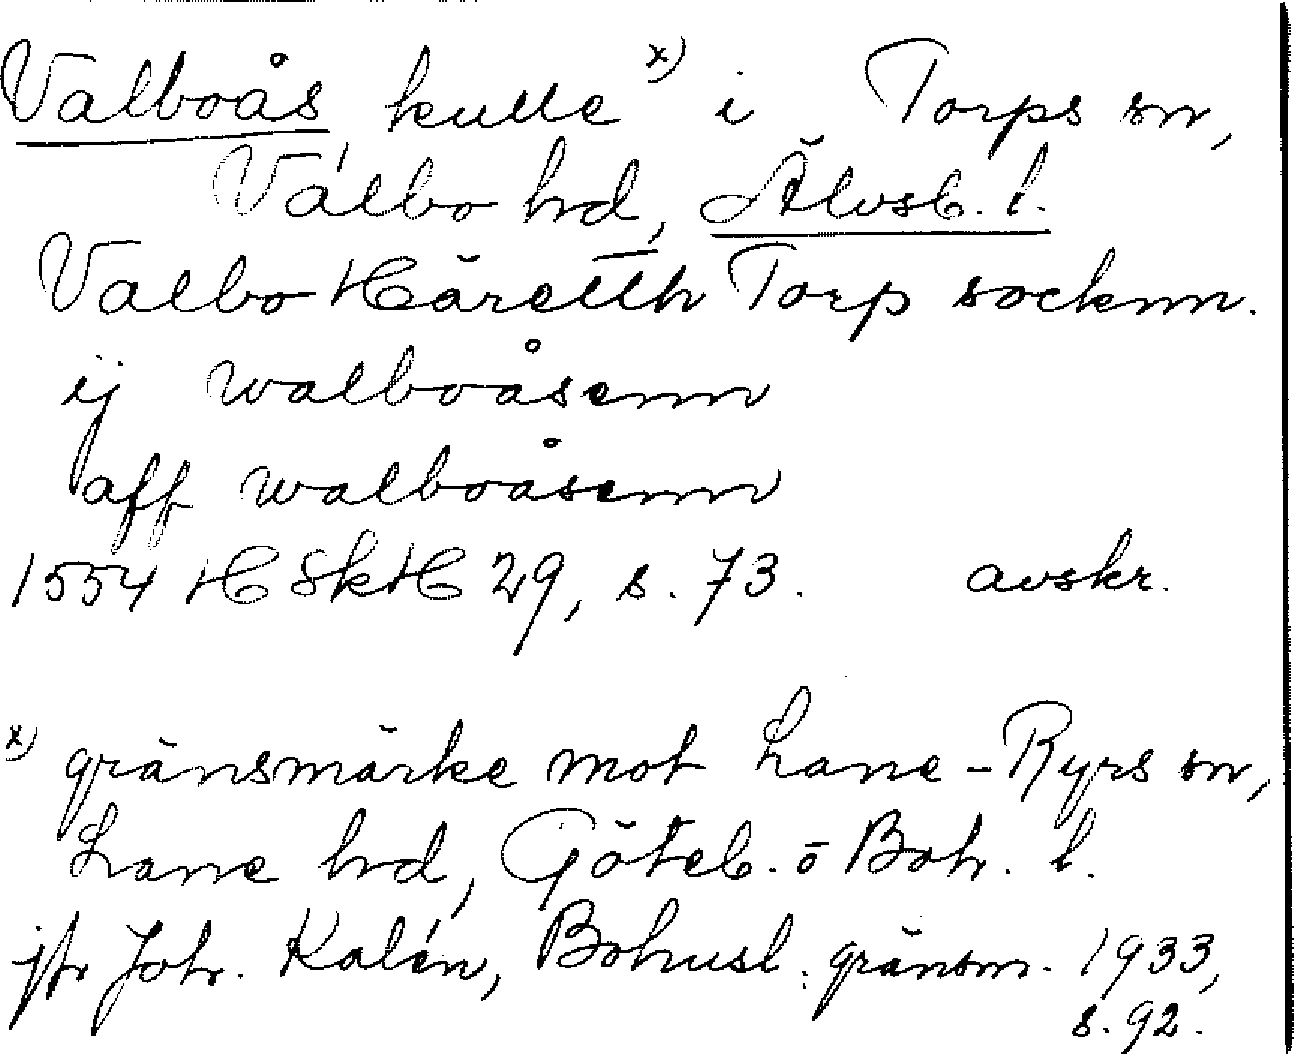 Valboås kulle x) i Torps sn,
Valbo hd, Älvsb. l.
Valbo Häretth Torp socknn.
ij walboåsenn
aff walboåsenn
1554 HSkH 29, s. 73. avskr.
x) gränsmärke mot Lane-Ryrs sn,
Lane hd, Göteb. o Boh. l.
jfr Joh. Kalén, Bohusl. gränsm. 1933,
s. 92.